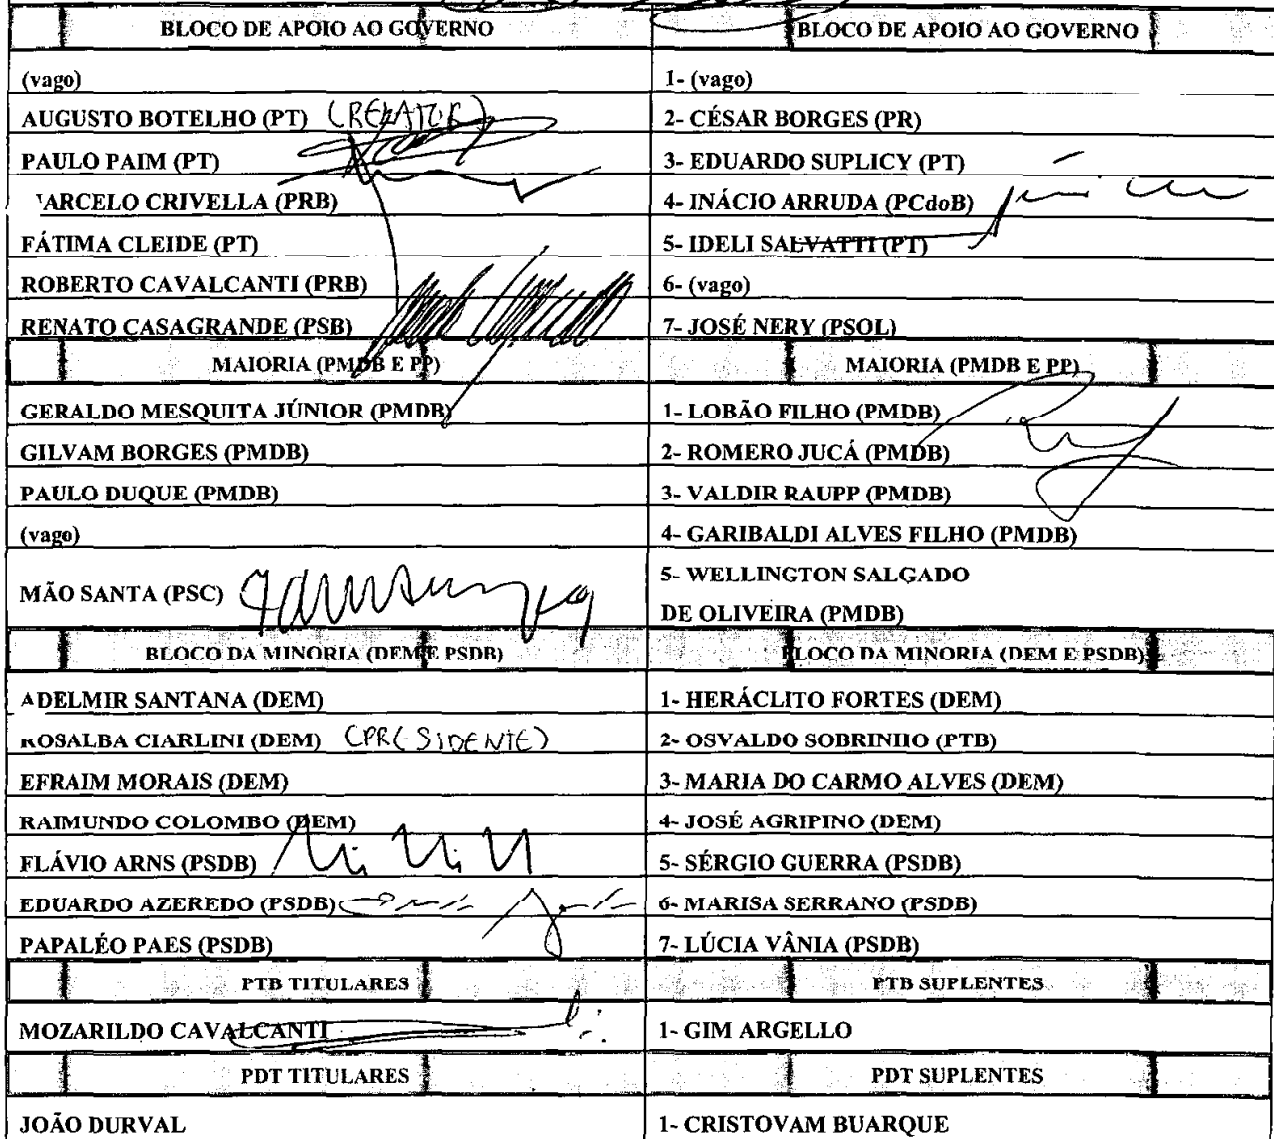 BLOCO DE APOIO AO GOVERNO BLOCO DE APOIO AO GOVERNO
(vago) 1- (vago)
AUGUSTO BOTELHO (PT) (RELATOR) 2- CÉSAR BORGES (PR)
PAULO PAIM (PT) 3- EDUARDO SUPLICY (PT)
ARCELO CRIVELLA (PRB) 4- INÁCIO ARRUDA (PCdoB)
FÁTIMA CLEIDE (PT) 5- IDELI SALVATTI (PT)
ROBERTO CAVALCANTI (PRB) 6- (vago)
RENATO CASAGRANDE (PSB) 7- JOSÉ NERY (PSOL)
MAIORIA (PMDB E PP) MAIORIA (PMDB E PP)
GERALDO MESQUITA JÚNIOR (PMDB) 1- LOBÃO FILHO (PMDB)
GILVAM BORGES (PMDB) 2- ROMERO JUCÁ (PMDB)
PAULO DUQUE (PMDB) 3- VALDIR RAUPP (PMDB)
(vago) 4- GARIBALDI ALVES FILHO (PMDB)
MÃO SANTA (PSC) 5- WELLINGTON SALGADO
DE OLIVEIRA (PMDB)
BLOCO DA MINORIA (DEM E PSDB) BLOCO DA MINORIA (DEM E PSDB)
ADELMIR SANTANA (DEM) 1- HERÁCLITO FORTES (DEM)
ROSALBA CIARLINI (DEM) (PRESIDENTE) 2- OSVALDO SOBRINHO (PTB)
EFRAIM MORAIS (DEM) 3- MARIA DO CARMO ALVES (DEM)
RAIMUNDO COLOMBO (DEM) 4- JOSÉ AGRIPINO (DEM)
FLÁVIO ARNS (PSDB) 5- SÉRGIO GUERRA (PSDB)
EDUARDO AZEREDO (PSDB) 6- MARISA SERRANO (PSDB)
PAPALÉO PAES (PSDB) 7- LÚCIA VÂNIA (PSDB)
PTB TITULARES PTB SUPLENTES
MOZARILDO CAVALCANTI 1- GIM ARGELLO
PDT TITULARES PDT SUPLENTES
JOÃO DURVAL 1- CRISTOVAM BUARQUE